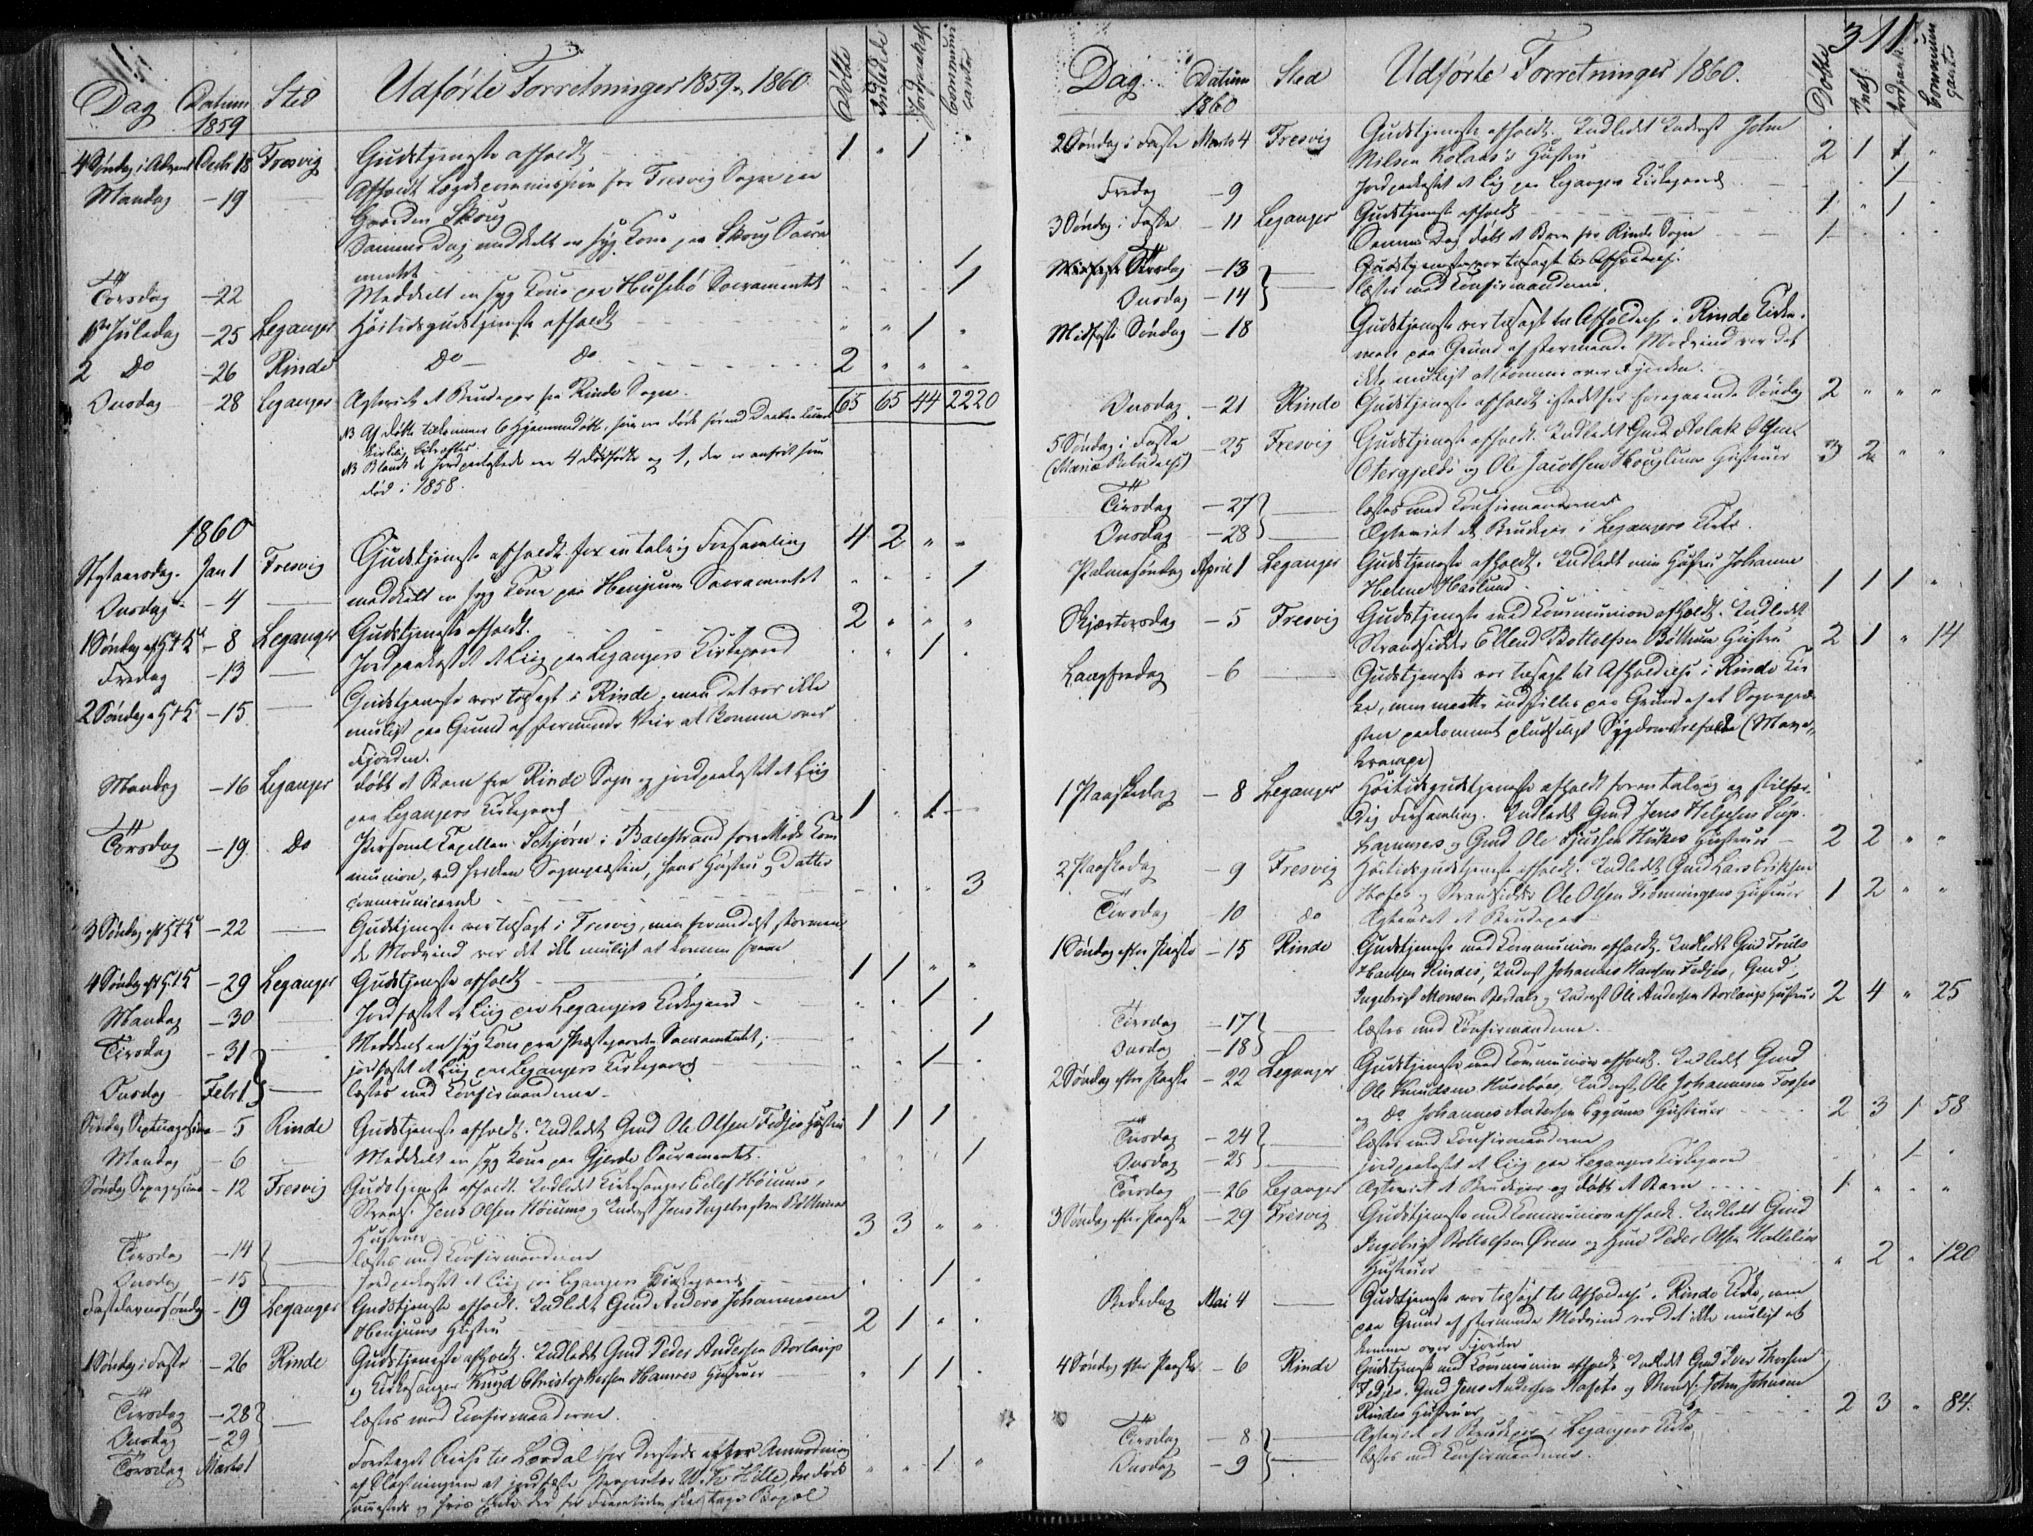 Dag Datum Sted Udførte Forretninger 1859 - 1860 Døbte Indledede Jordpaakast Communicanter
1859
4 Søndag i Advent Decb 18 Fresvig Gudstjeneste afholdt 1 " 1 "
Mandag - 19 — Afholdt Lægdscommission for Fresvig Sogn paa
Gaarden Skoug
Samme Dag meddelt en syg Kone paa Skoug Sacra
mentet 1
Torsdag - 22 Meddelt en syg Kone paa Husebø Sacramentet 1
1ste Juledag - 25 Leganger Høitidsgudstjeneste afholdt " " 1 "
2 Do - 26 Rinde Do - Do 2 " " "
Onsdag - 28 Leganger Ægteviet et Brudepar fra Rinde Sogn. 65 65 44 2220
NB Af døbte tilkommer 6 Hjemmedøbte, som ere døde førend Daaben kunde
kirkelig bekræftes
NB Blandt de Jordpaakastede ere 4 dødfødte og 1, der er anført som
død i 1858.
1860
Nytaarsdag. Jan 1 Fresvig Gudstjeneste afholdt for en talrig Forsamling 4 2 " "
Onsdag - 4 — meddelt en syg Kone paa Henjum Sacramentet 1
1 Søndag e. H 3 K - 8 Leganger Gudstjeneste afholdt. 2 " " "
Fredag - 13 — Jordpaakastet et Liig paa Legangers Kirkegaard 1
2 Søndag e H 3 K - 15 — Gudstjeneste var tilsagt i Rinde, men det var ikke
muligt paa Grund af stormende Veir at komme over
Fjorden.
Mandag - 16 Leganger døbt et Barn fra Rinde Sogn og jordpaakastet et Liig
paa Legangers Kirkegaard 1 . 1
Torsdag - 19 Do Personel Capellan Schjørn i Balestrand forrettede Com
munion, ved hvilken Sognepræsten, hans Hustru og Datter
communicerede 3
3 Søndag eft H 3 K - 22 — Gudstjeneste var tilsagt i Fresvig, men formedelst stormen
de Modvind var det ikke muligt at komme frem
4 Søndag eft H 3 K - 29 Leganger Gudstjeneste afholdt 1 1 " "
Mandag - 30 Jordfæstet et Liig paa Legangers Kirkegaard 1
Tirsdag - 31 Meddelt en syg Kone paa Præstegaarden Sacramentet; 1
jordfæstet et Liig paa Legangers Kirkegaard 1
Onsdag Febr 1 — læstes med Confirmanderne
Søndag Septuagesima - 5 Rinde Gudstjeneste afholdt. Indledet Gmd Ole Olsen Fedjes Hustru 1 1 1
Mandag - 6 Meddelt en syg Kone paa Gjerde Sacramentet. 1
Søndag Sexagesima - 12 Fresvig Gudstjeneste afholdt. Indledet Kirkesanger Høiums,
Strands. Jens Olsen Høiums og Inderst Jens Ingebrigtsen Bøttums
Hustruer 3 3 " "
Tirsdag - 14 — læstes med Confirmanderne
Onsdag - 15 Jordpaakastet et Liig paa Legangers Kirkegaard 1
Fastelavnssøndag - 19 Leganger Gudstjeneste afholdt. Indledet Gmd Anders Johannesen
Henjums Hustru 2 1 " "
1 Søndag i Faste - 26 Rinde Gudstjeneste afholdt. Indledet Gmd Peder Andersen Borlaugs
og Kirkesanger Knud Christophersen Hamres Hustruer . 1 1 .
Tirsdag - 28 — læstes med Confirmanderne.
Onsdag - 29
Torsdag Marts 1 Foretaget Reise til Lærdal for dersteds efter Anmodning
af Slægtningene at jordfæste W. Hille, der døde " " 1 "
sammesteds og hvis Enke der for Fremtiden skal tage Bopæl

311.
Dag. Datum Sted Udførte Forretninger 1860. Døbte Indl. Jordpaak. Communicants
1860
2 Søndag i Faste Marts 4 Fresvig Gudstjeneste afholdt. Indledet Inderst John
Nilsen Hustru 2 1 1 "
Fredag - 9 Jordpaakastet et Liig paa Legangers Kirkegaard 1
3 Søndag i Faste - 11 Leganger Gudstjeneste afholdt 1 " 1
Samme Dag døbt et Barn fra Rinde Sogn 1
Tirsdag - 13 —
Onsdag - 14 læstes med Confirmanderne.
Midfaste Søndag - 18 Gudstjeneste var tilsagt til Afholdelse i Rinde Kirke,
men paa Grund af stormende Modvind var det
ikke muligt at komme over Fjorden.
Onsdag - 21 Rinde Gudstjeneste afholdt istedetfor foregaaende Søndag 2 " " "
5 Søndag i Faste - 25 Fresvig Gudstjeneste afholdt. Indledet Gmd Aslak Olsen
(Mariæ Bebudelse) og Ole Jacobsen Hustruer 3 2 " "
Tirsdag - 27 — læstes med Confirmanderne
Onsdag - 28 — Ægteviet et Brudepar i Legangers Kirke.
Palmesøndag April 1 Leganger Gudstjeneste afholdt. Indledet min Hustru Johanne
Helene Haslund 1 1 1 "
Skjærtorsdag - 5 Fresvig Gudstjeneste med Communion afholdt. Indledet
Strandsidder Ellend Bottolfsen Bøttums Hustru 2 1 " 14
Langfredag - 6 — Gudstjeneste var tilsagt til Afholdelse i Rinde Kir
ke, men maatte indstilles paa Grund af et Sognepræ
sten paakommet pludseligt Sygdomstilfælde (Mave
krampe)
1 Paaskedag - 8 Leganger Høitidsgudstjeneste afholdt for en talrig og stilfær
dig Forsamling. Indledet Gmd Jens Helgesen
og Gmd Ole Hustruer 2 2 " "
2 Paaskedag - 9 Fresvig Høitidsgudstjeneste afholdt. Indledet Gmd Lars Eriksen
Hofes og Strandsidder Ole Olsen Trønningens Hustruer 1 2 " "
Tirsdag - 10 do Ægteviet et Brudepar
1 Søndag efter Paaske - 15 Rinde Gudstjeneste med Communion afholdt. Indledet Gmd Truls
Hansen Rindes, Inderst Johannes Hansen Fedjes, Gmd
Ingebrigt Monsen og Inderst Ole Andersen Borlaugs Hustruer 2 4 " 25
Tirsdag - 17 — læstes med Confirmanderne.
Onsdag - 18
2 Søndag efter Paaske - 22 Leganger Gudstjeneste med Communion afholdt. Indledet Gmd
Ole Knudsen Husebøes, Inderst Ole Johannesen
og do Johannes Andersen Eggums Hustruer 2 3 1 58
Tirsdag - 24 — læstes med Confirmanderne
Onsdag - 25 — jordpaakastet et Liig paa Legangers Kirkegaard 1
Torsdag - 26 Leganger Ægteviet et Brudepar og døbt et Barn 1 " " "
3 Søndag efter Paaske - 29 Fresvig Gudstjeneste med Communion afholdt. Indledet Gmd
Ingebrigt Bottolfsen Ørens og Gmd Peder Olsen
Hustruer " 2 " 120
Bededag Mai 4 — Gudstjeneste var tilsagt til Afholdelse i Rinde Kirke, men
paa Grund af stormende Modvind var det ikke muligt at
komme over Fjorden
4 Søndag efter Paaske - 6 Rinde Gudstjeneste med Communion afholdt. Indledet Gmd Iver Thorsen
Fedjes, Gmd Jens Andersen og Strands. John Johnsen
Rindes Hustruer 2 3 " 84.
Tirsdag - 8 — Ægteviet et Brudepar i Legangers Kirke
Onsdag - 9 — læstes med Confirmanderne.